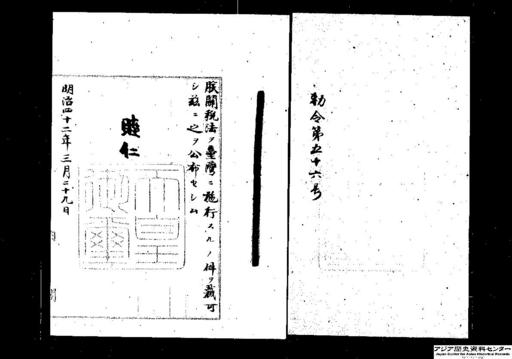 勅令第五十六号
朕關税法ヲ臺灣ニ施行スルノ件ヲ裁可
シ茲ニ之ヲ公布セシム
睦仁
天皇
御璽
明治四十二年三月二十九日
内閣
アジア歴史資料センター
Japan Center for Asian Historical Records